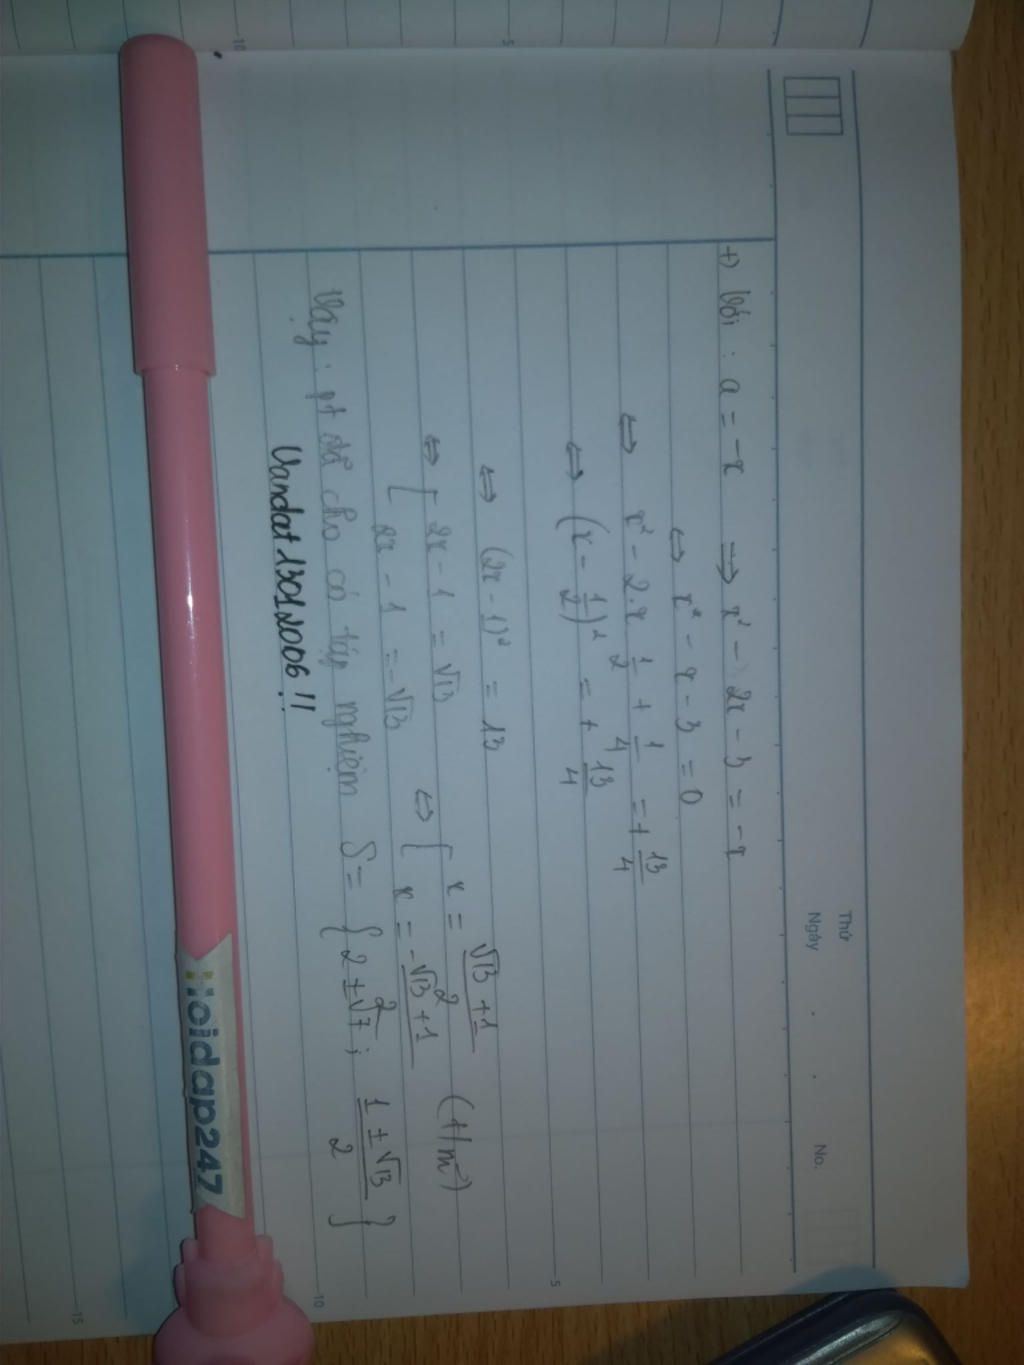 Thứ
Ngày . . No.
+) Với : a = -x ⇒ x² - 2x - 3 = -x
⇔ x² - x - 3 = 0
⇔ x² - 2.x 1/2 + 1/4 = + 13/4
⇔ (x - 1/2)² = + 13/4
5
⇔ (2x - 1)² = 13
⇔ [ 2x - 1 = √13 ⇔ [ x = (√13 + 1)/2 (t/m)
2x - 1 = -√13 x = (-√13 + 1)/2
Vậy : pt đã cho có tập nghiệm S = { 2 ± √7 ; (1 ± √13)/2 }
10
Vandat13012006!!
Hoidap247
15
10
5